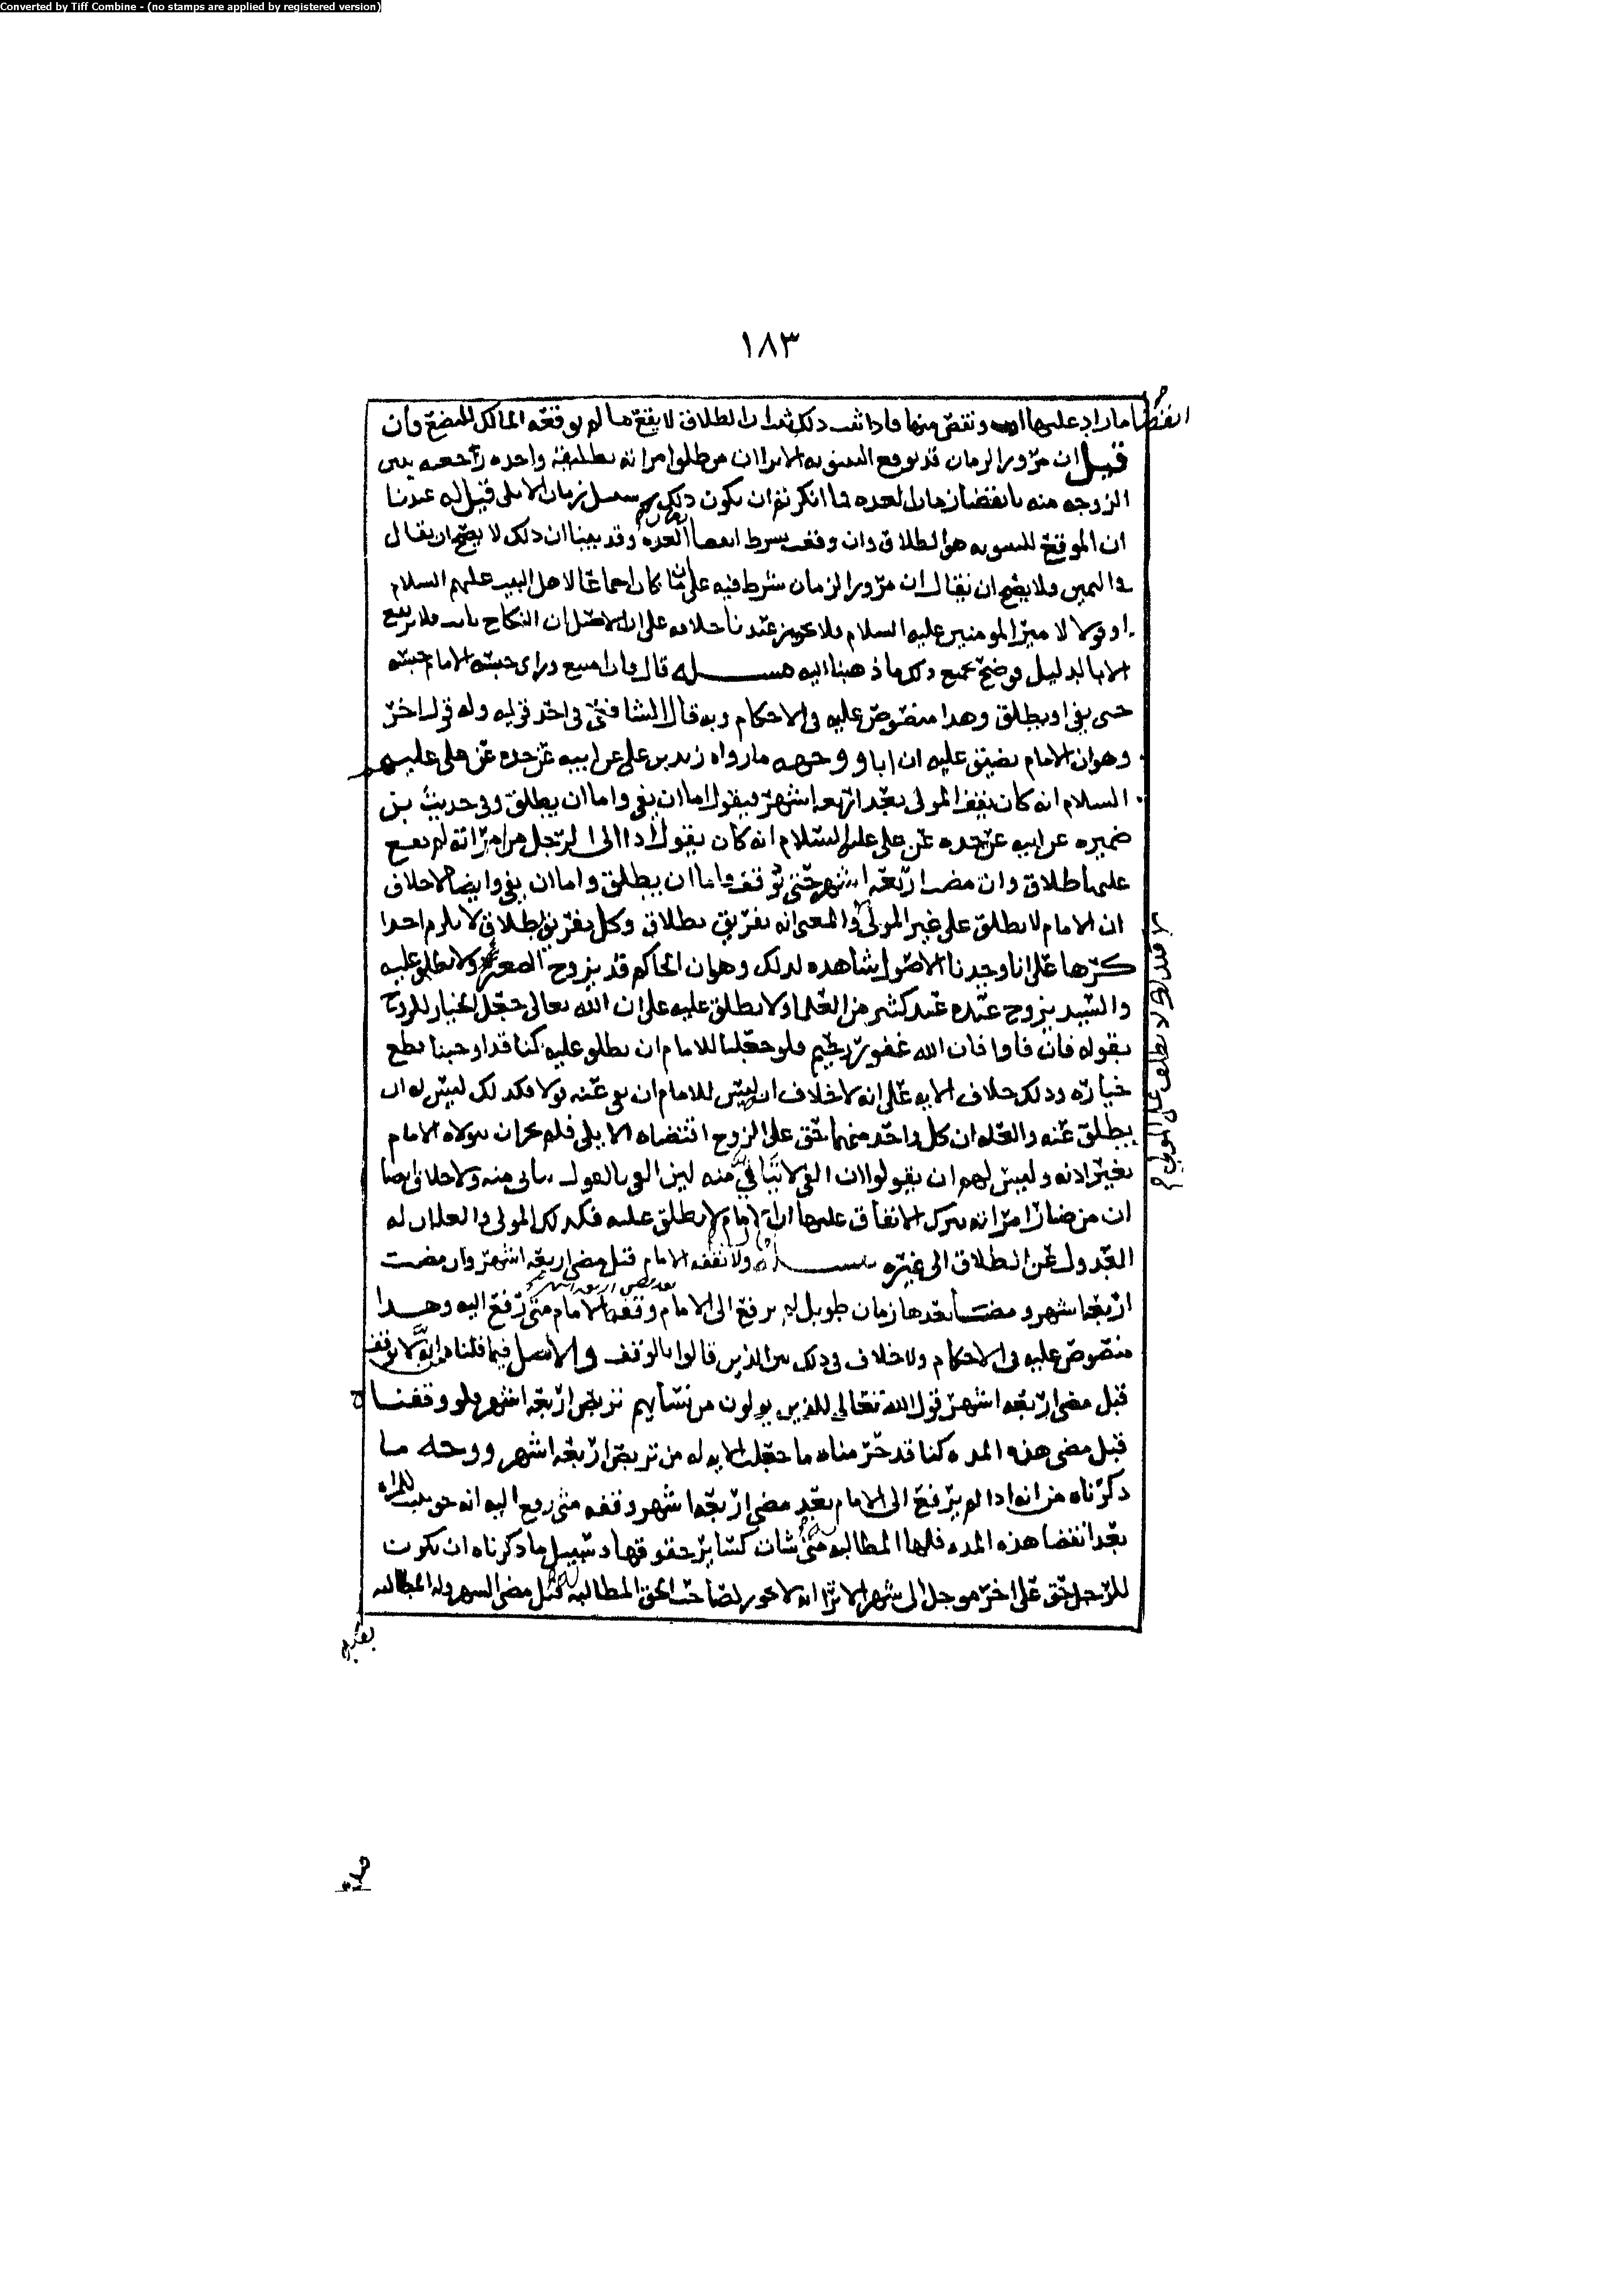 Converted by Tiff Combine - (no stamps are applied by registered version)
١٨٣
عليها ونقص منها فاذا ثبت ذلك ثبت ان الطلاق لا يقع ما لم يوقعه المالك للبضع فان
قيل ان مرور الزمان قد يوقع البينونه الا ترا ان من طلق امراته تطليقة واحده رجعيه تبين
الزوجه منه بانقضا زمان العده فما انكرتم ان يكون ذلك سبيل زمان الايلى قيل له عندنا
ان الموقع للبينونه هو الطلاق وان وقف بشرط انقضا العده وقد بينا ان ذلك لا يصح ان يقال
في اليمين ولا يصح ان يقال ان مرور الزمان شرط فيه على كان اجماعا لاهل البيت عليهم السلام
او قولا لامير المومنين عليه السلام فلا يجوز عندنا خلافه على ان الاصل ان النكاح ثابت فلا يرتفع
الا بالدليل فوضح بجميع ذلك ما ذهبنا اليه مسئله قال فان امتنع وراى حبسه الامام حبسه
حتى يفي او يطلق وهذا منصوص عليه في الاحكام وبه قال الشافعي في احد قوليه وله قول اخر
وهو ان الامام يضيق عليه ان ابا ووجهه ما رواه زيد بن علي عن ابيه عن جده عن علي عليهم
السلام انه كان يقف المولي بعد اربعه اشهر ويقول اما ان يفي واما ان يطلق وفي حديث بن
ضميره عن ابيه عن جده عن علي عليه السلام انه كان يقول اذا الى الرجل من امراته لم يقع
عليها طلاق وان مضت اربعة اشهر حتى توقف فاما ان يطلق واما ان يفي وايضا لا خلاف
ان الامام لا يطلق على غير المولي والمعنى انه تفريق بطلاق وكل تفريق بطلاق لا يلزم احدا
كرها على انا وجدنا الاصول شاهده لذلك وهو ان الحاكم قد يزوج الصغير ولا يطلق عليه
والسيد يزوج عبده عند كثير من العلما ولا يطلق عليه على ان الله تعالى جعل الخيار للزوج
بقوله فان فاوا فان الله غفور رحيم فلو جعلنا للامام ان يطلق عليه كنا قد اوجبنا قطع
خياره وذلك خلاف الايه على انه لا خلاف ان ليس للامام ان يفي عنه قولا فكذلك ليس له ان
يطلق عنه والعله ان كل واحد منهما حق على الزوج اقتضاه الايلى فلم يجز ان يتولاه الامام
بغير اذنه وليس لهم ان يقولوا ان الفي لا يتاتى منه لين الفي بالقول يتاتى منه ولا خلاف ايضا
ان من ضار امراته بترك الانفاق عليها ان الامام لا يطلق عليه فكذلك المولي والعله ان له
العدول عن الطلاق الى غيره مسئله ولا يقفه الامام قبل مضي اربعة اشهر وان مضت
اربعة اشهر ومضى بعدها زمان طويل لم يرفع الى الامام وقفه الامام متى رفع اليه وهذا
بعد مضي اربعه اشهر
منصوص عليه في الاحكام ولا خلاف في ذلك بين الذين قالوا بالوقف والاصل فيما قلناه انه لا يوقف
قبل مضي اربعه اشهر قول الله تعالى للذين يولون من نسايهم تربص اربعة اشهر فلو وقفناه
قبل مضي هذه المده كنا قد حرمناه ما جعلت الايه له من تربص اربعه اشهر ووجه ما
ذكرناه من انه اذا لم يرفع الى الامام بعد مضي اربعة اشهر وقفه متى رفع اليه انه حق يثبت للمراه
بعد انقضا هذه المده فلها المطالبه متى شات كساير حقوقها وسبيل ما ذكرناه ان يكون
للرجل حق على اخر موجل الى شهر الا ترا انه لا يجوز لصاحب الحق المطالبه قبل مضي الشهر وله المطالبه
بعده
فكذلك لا يطلق على المولي